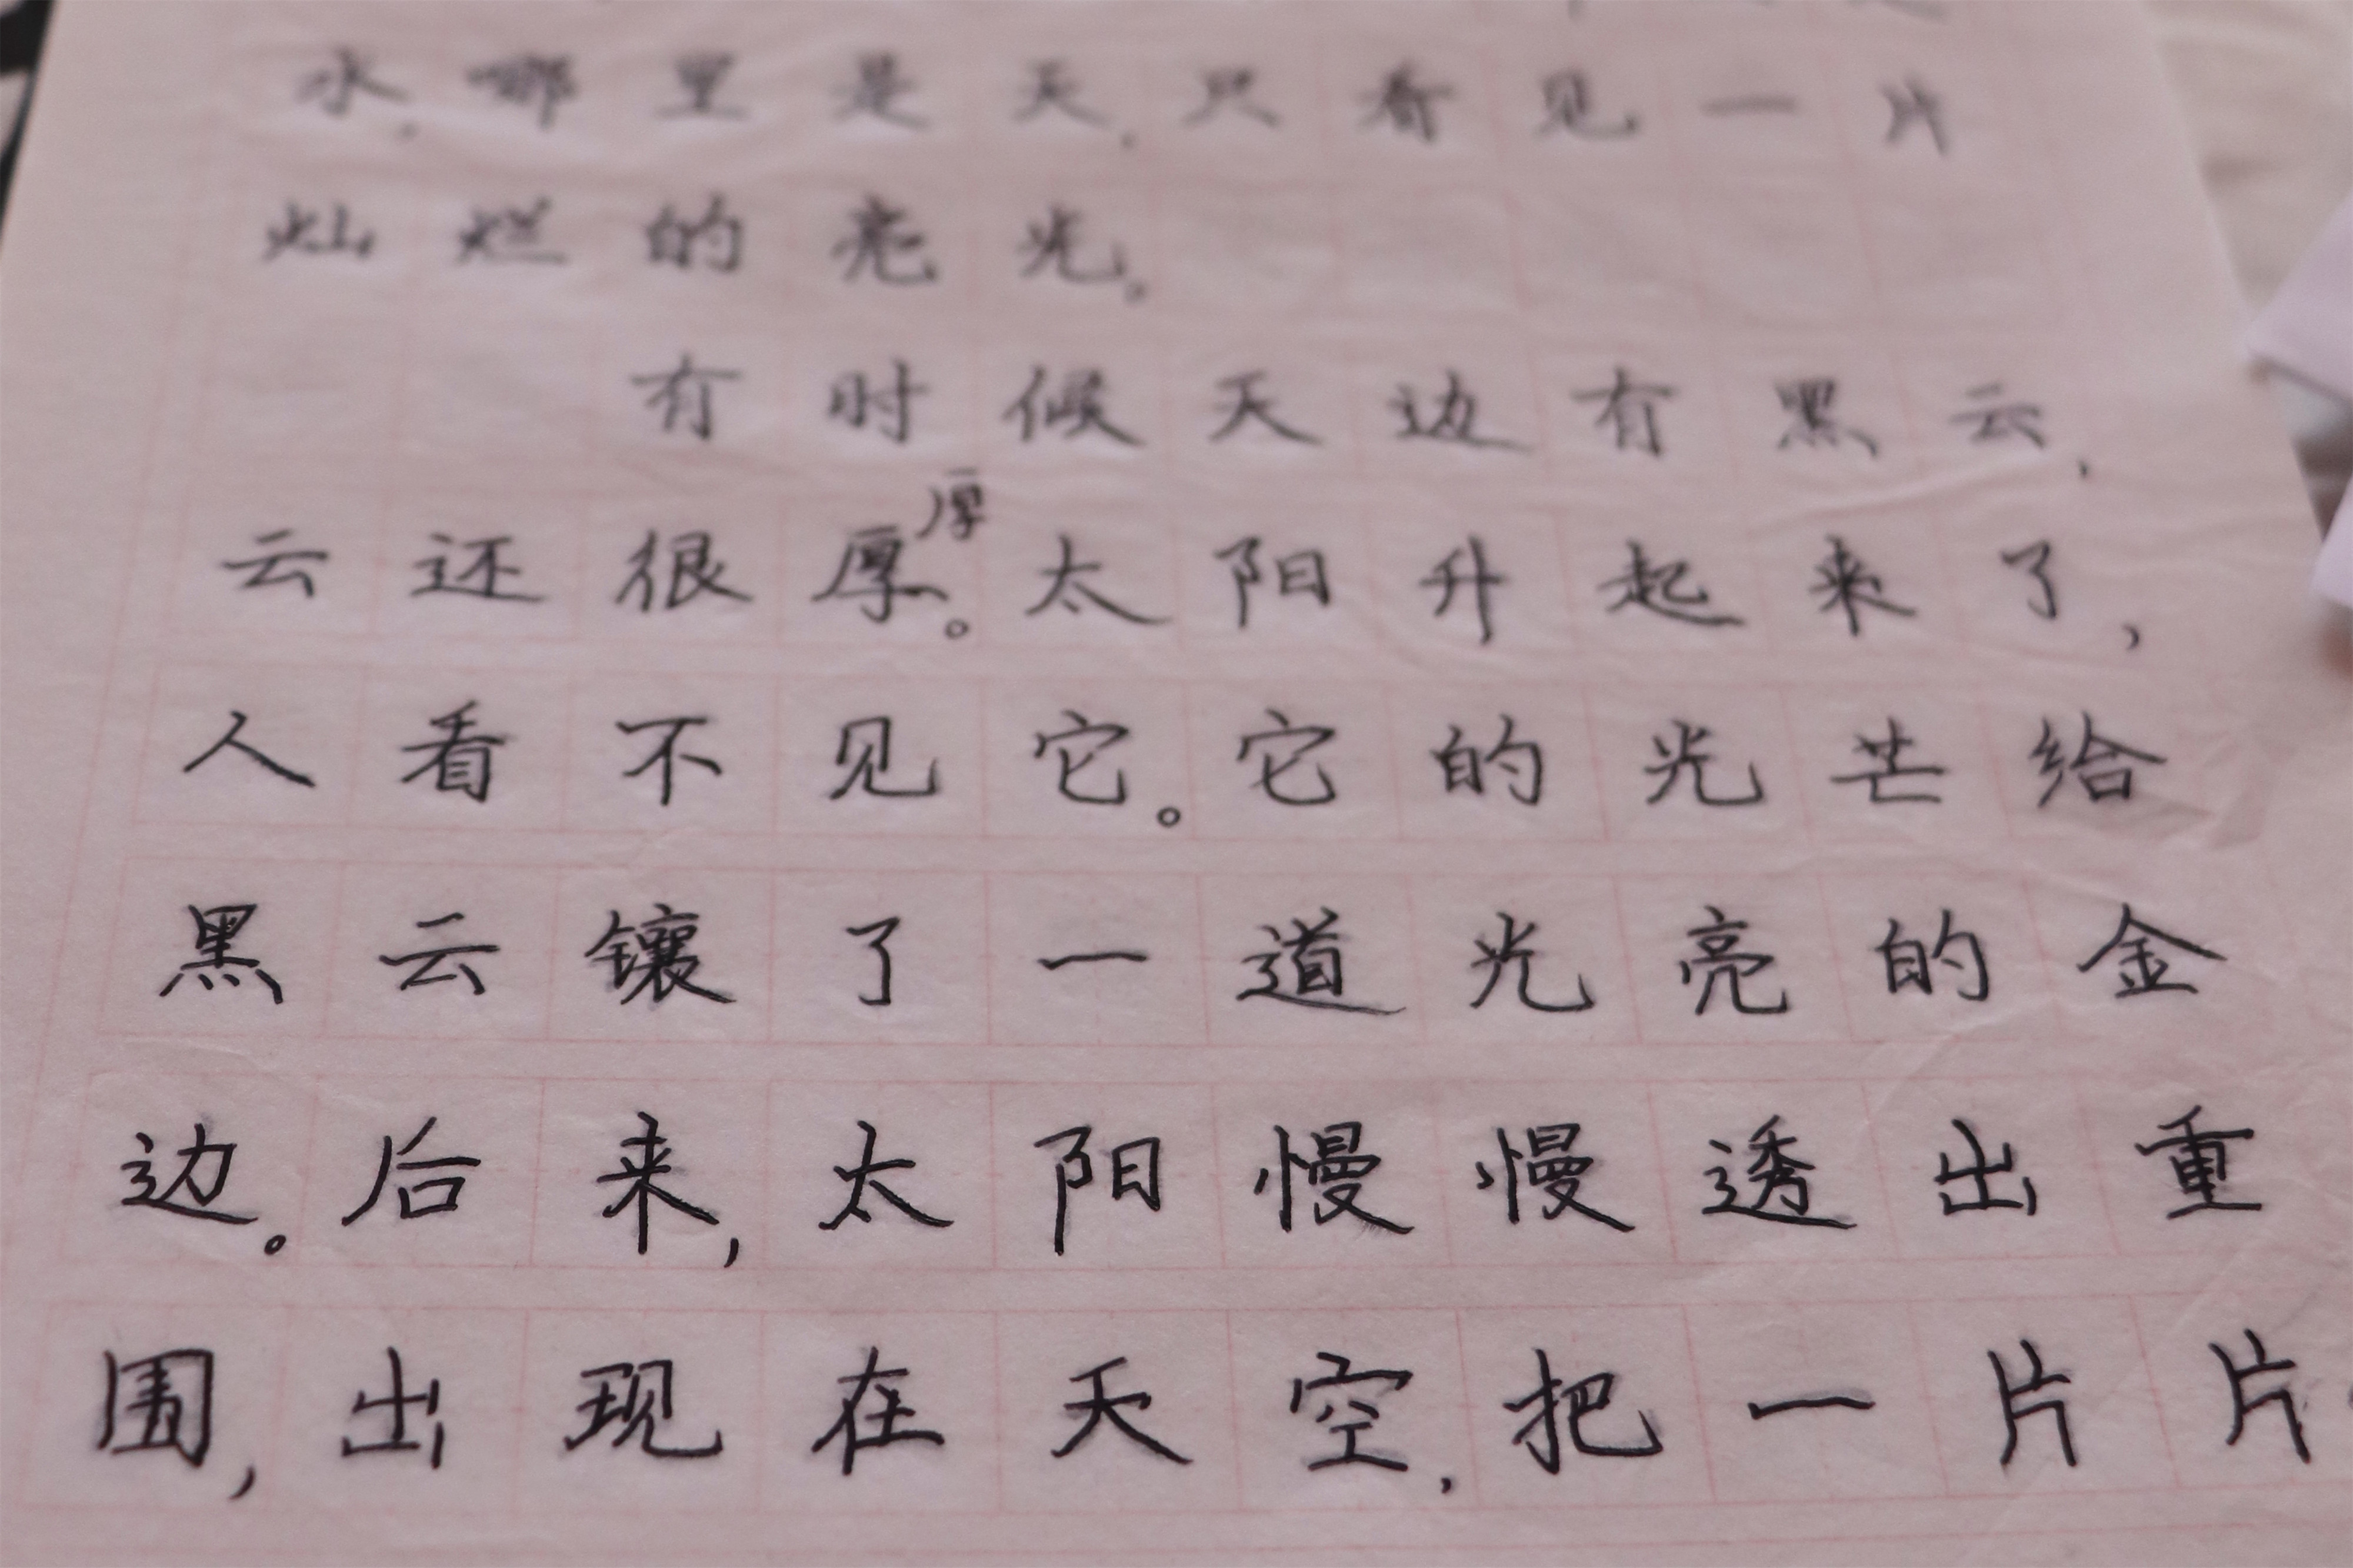 水,哪里是天,只看见一片
灿烂的亮光。
有时候天边有黑云,
云还很厚厚。太阳升起来了,
人看不见它。它的光芒给
黑云镶了一道光亮的金
边。后来,太阳慢慢透出重
围,出现在天空,把一片片